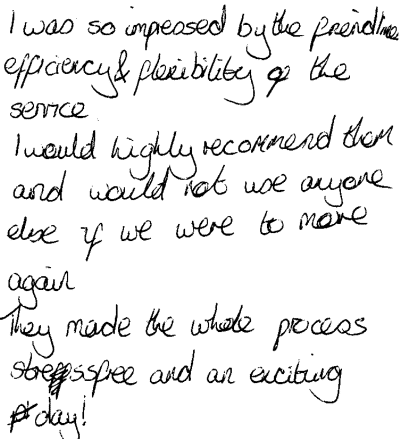 I was so impressed by the freindlness
efficiency & flexibility of the
service
I would highly recommend them
and would not use anyone
else if we were to move
again
They made the whole process
stressfree and an exciting
day!